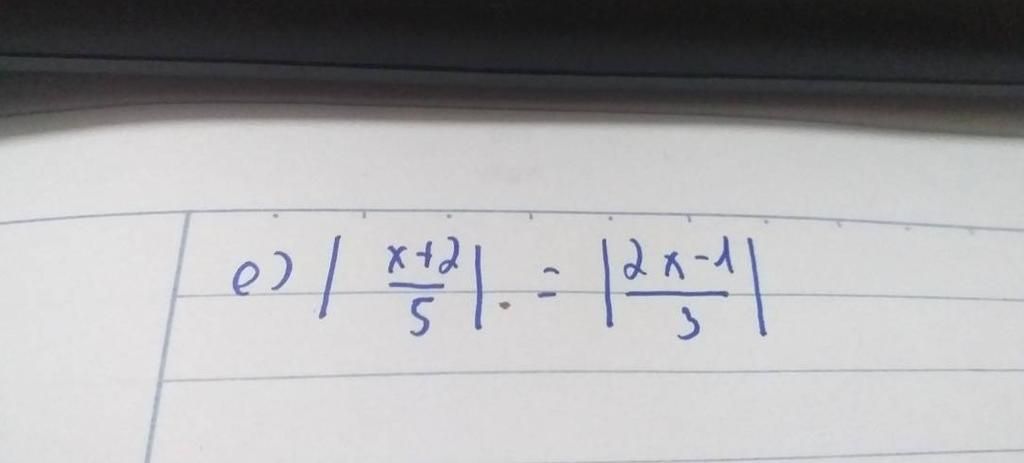 e) | x+2/5 | = | 2x-1/3 |